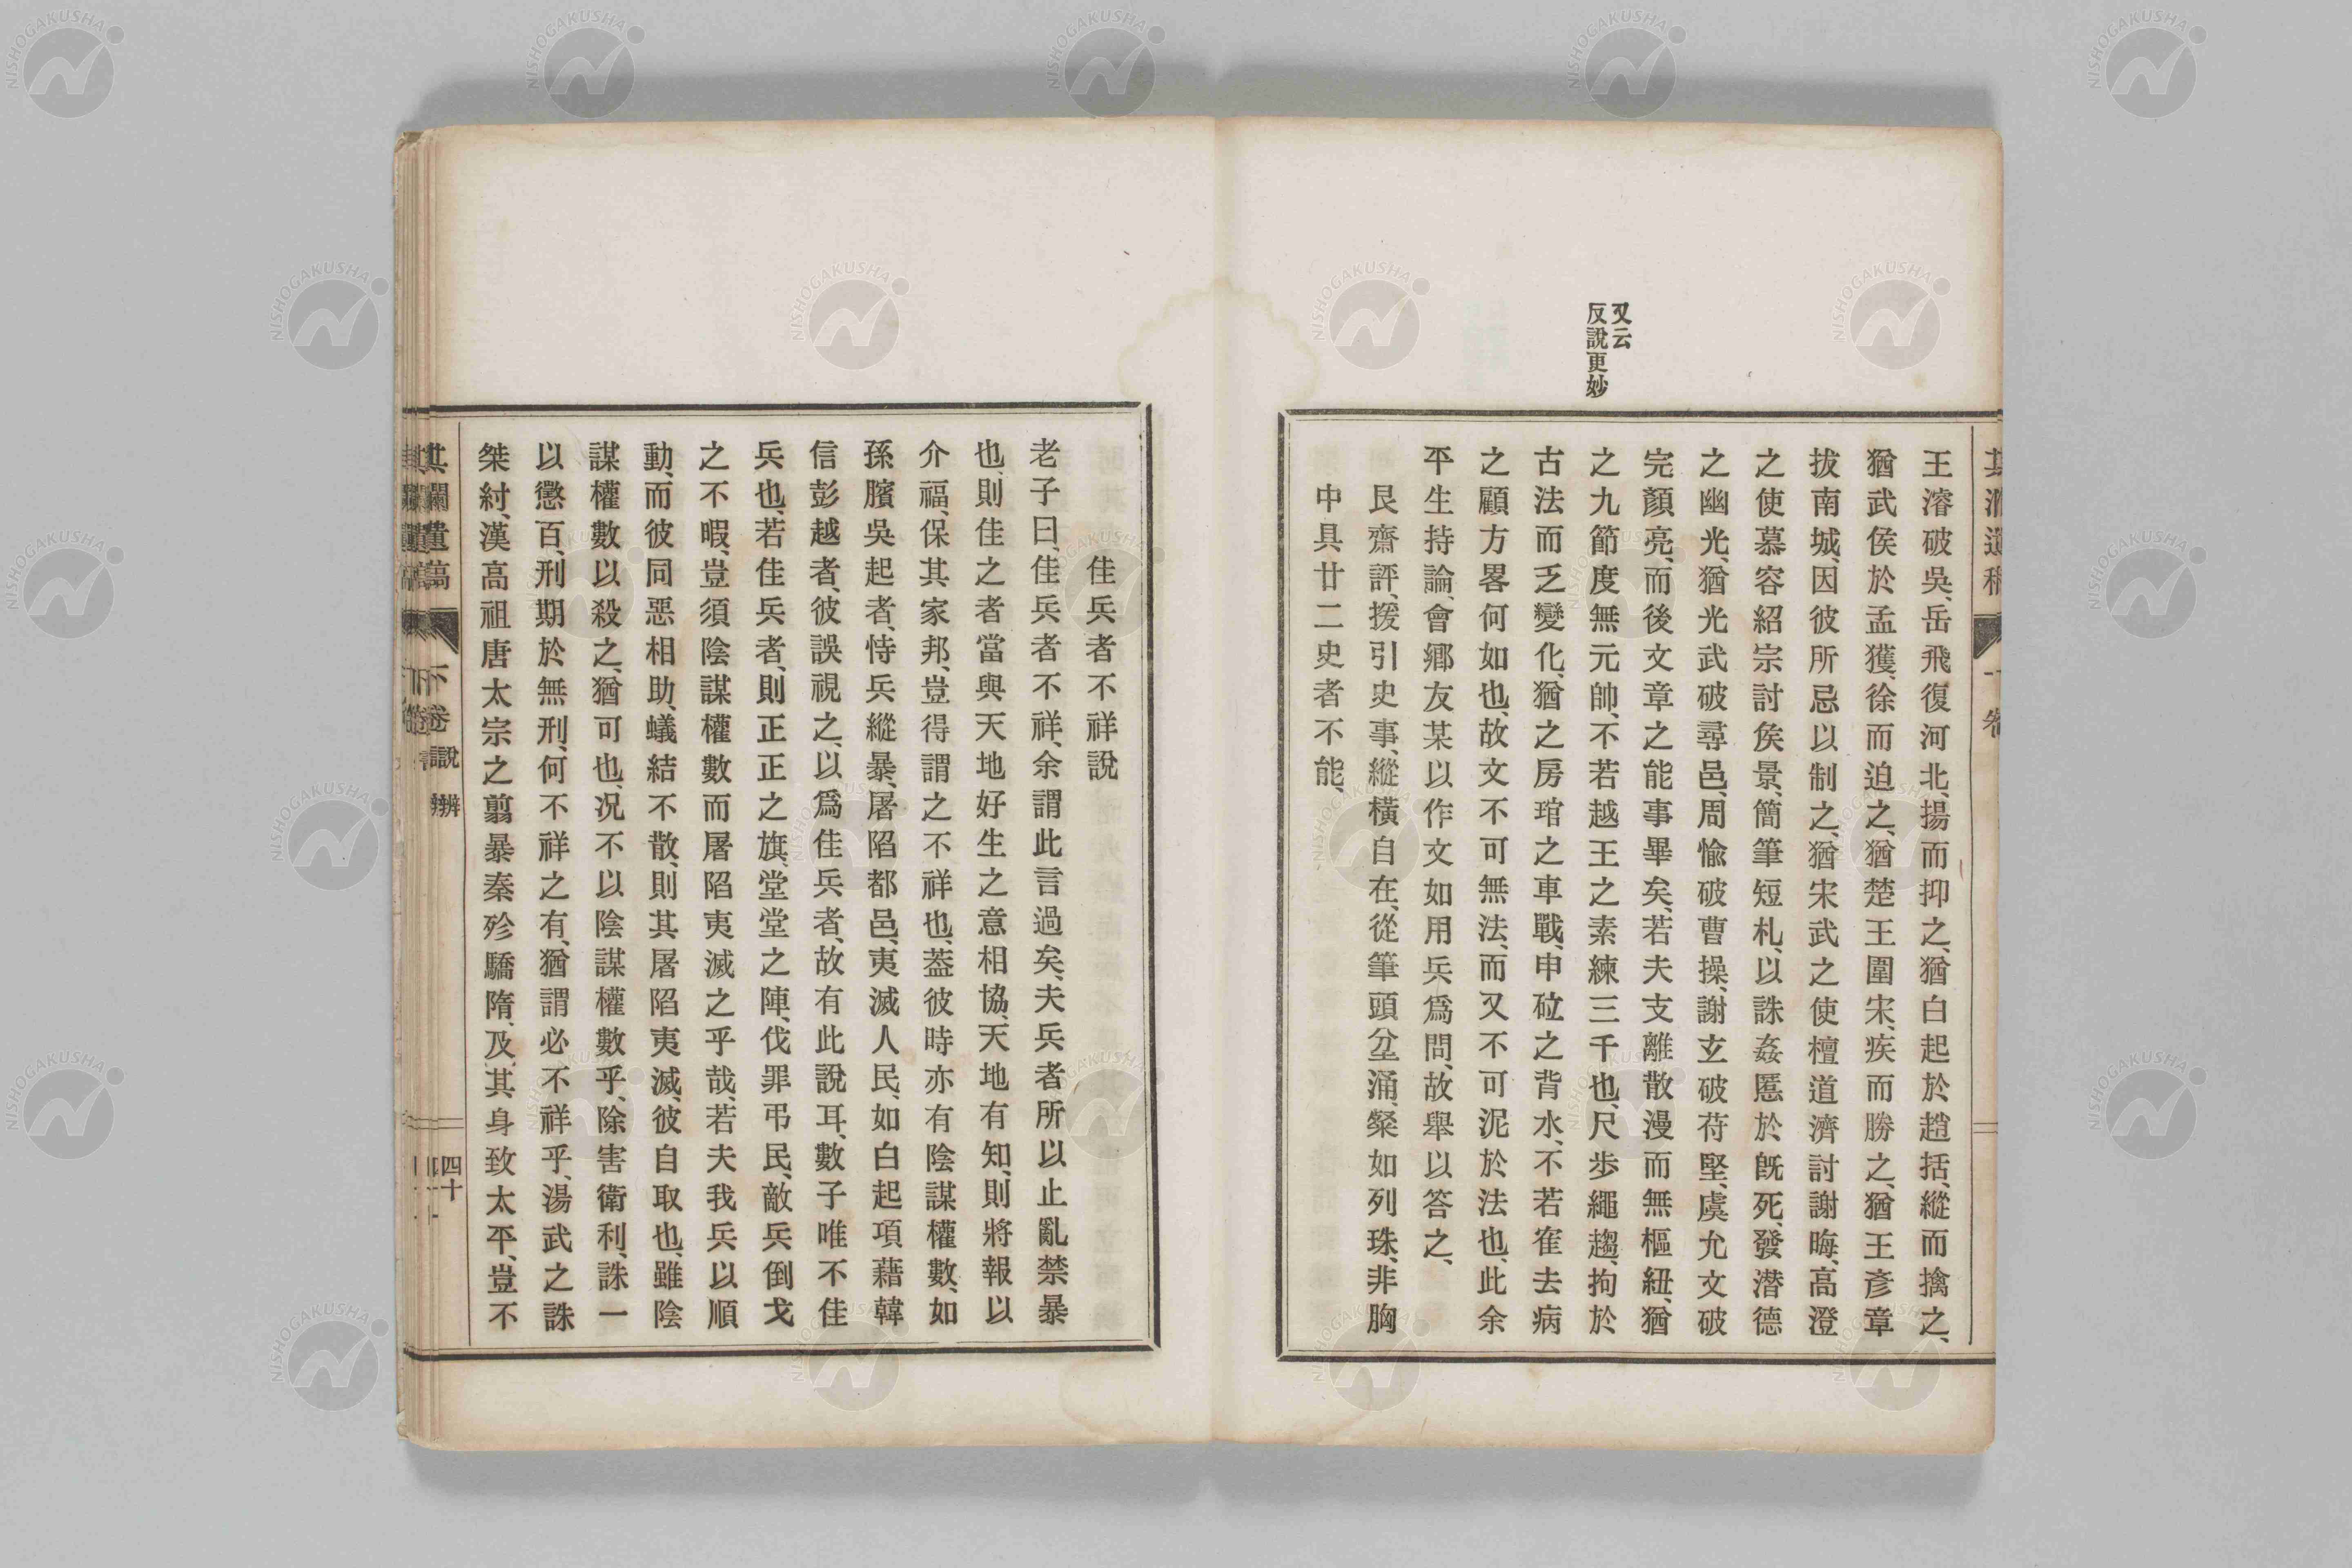 又云
反說更妙
王濬破吳、岳飛復河北、揚而抑之、猶白起於趙括、縱而擒之、
猶武侯於孟獲、徐而迫之、猶楚王圍宋、疾而勝之、猶王彥章
拔南城、因彼所忌以制之、猶宋武之使檀道濟討謝晦、高澄
之使慕容紹宗討矦景、簡筆短札、以誅姦慝於、旣死、發潜德
之幽光、猶光武破尋邑、周愉破曹操、謝玄破苻堅、虞允文破
完顏亮、而後文章之能事畢矣、若夫支離散漫而無樞紐、猶
之九節度無元帥、不若越王之素練三千也、尺步繩趨、拘於
古法而乏變化、猶之房琯之車戰、申砬之背水、不若隺去病
之顧方畧何如也、故文不可無法、而又不可泥於法也、此余
平生持論、會鄉友某以作文如用兵爲問、故舉以答之、
艮齋評、援引史事、縱橫自在、從筆頭坌涌、粲如列珠、非胸
中具廿二史者不能、
佳兵者不祥說
老子曰、佳兵者不祥、余謂此言過矣、夫兵者所以止亂禁暴
也、則佳之者當與天地好生之意相協、天地有知、則將報以
介福、保其家邦、豈得謂之不祥也、蓋彼時亦有陰謀權數、如
孫臏吳起者、恃兵縱暴、屠陷都邑、夷滅人民、如白起項藉韓
信彭越者、彼誤視之、以爲佳兵者、故有此說耳、數子唯不佳
兵也、若佳兵者、則正正之旗、堂堂之陣、伐罪弔民、敵兵倒戈
之不暇、豈須陰謀權數而屠陷夷滅之乎哉、若夫我兵以順
動、而彼同惡相助、蟻結不散、則其屠陷夷滅、彼自取也、雖陰
謀權數以殺之、猶可也、况不以陰謀權數乎、除害衛利、誅一
以懲百、刑期於無刑、何不祥之有、猶謂必不祥乎、湯武之誅
桀紂、漢高祖唐太宗之翦暴秦殄驕隋、及、其身致太平、豈不
下卷 說 辨
四十